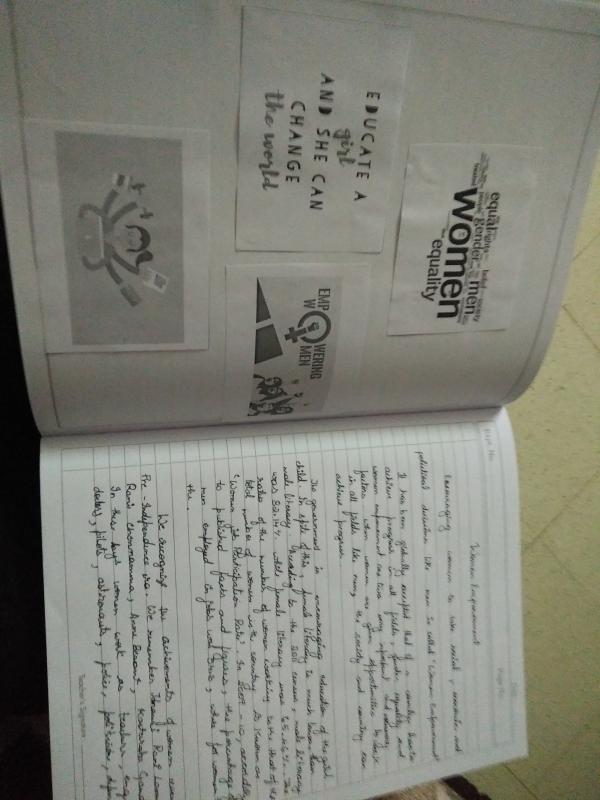 EDUCATE A
girl
AND SHE CAN
CHANGE
the world
equal
gender men
women
equality
EMPOWERING
WOMEN
Women Empowerment
Encouraging women to take social, economic and
political decisions like men is called "Women Empowerment
It has been globally accepted that if a country has to
achieve progress in all fields, gender equality and
women empowerment are two very important
factors. When women are given opportunities
in all fields like men, the society and country can
achieve progress.
The government is encouraging education of the girl
child. In spite of this, female literacy is much lower than
male literacy. According to the 2011 census, male literacy
was 82.14% while female literacy was 65.46%. The
ratio of the number of women working to the that of the
total number of women in the country is known as
'Women Job Participation Rate'. In 2009-10, according
to published facts and figures, the percentage of
men employed in jobs was while for women
this.
We recognize the achievements of women
Pre-Independence era. We remember Jhansi Rani
Rani Chennamma, Annie Besant, Kasturba
In these days women work as teachers,
doctors, pilots, astronauts, police, politicians,
Teacher's Signature